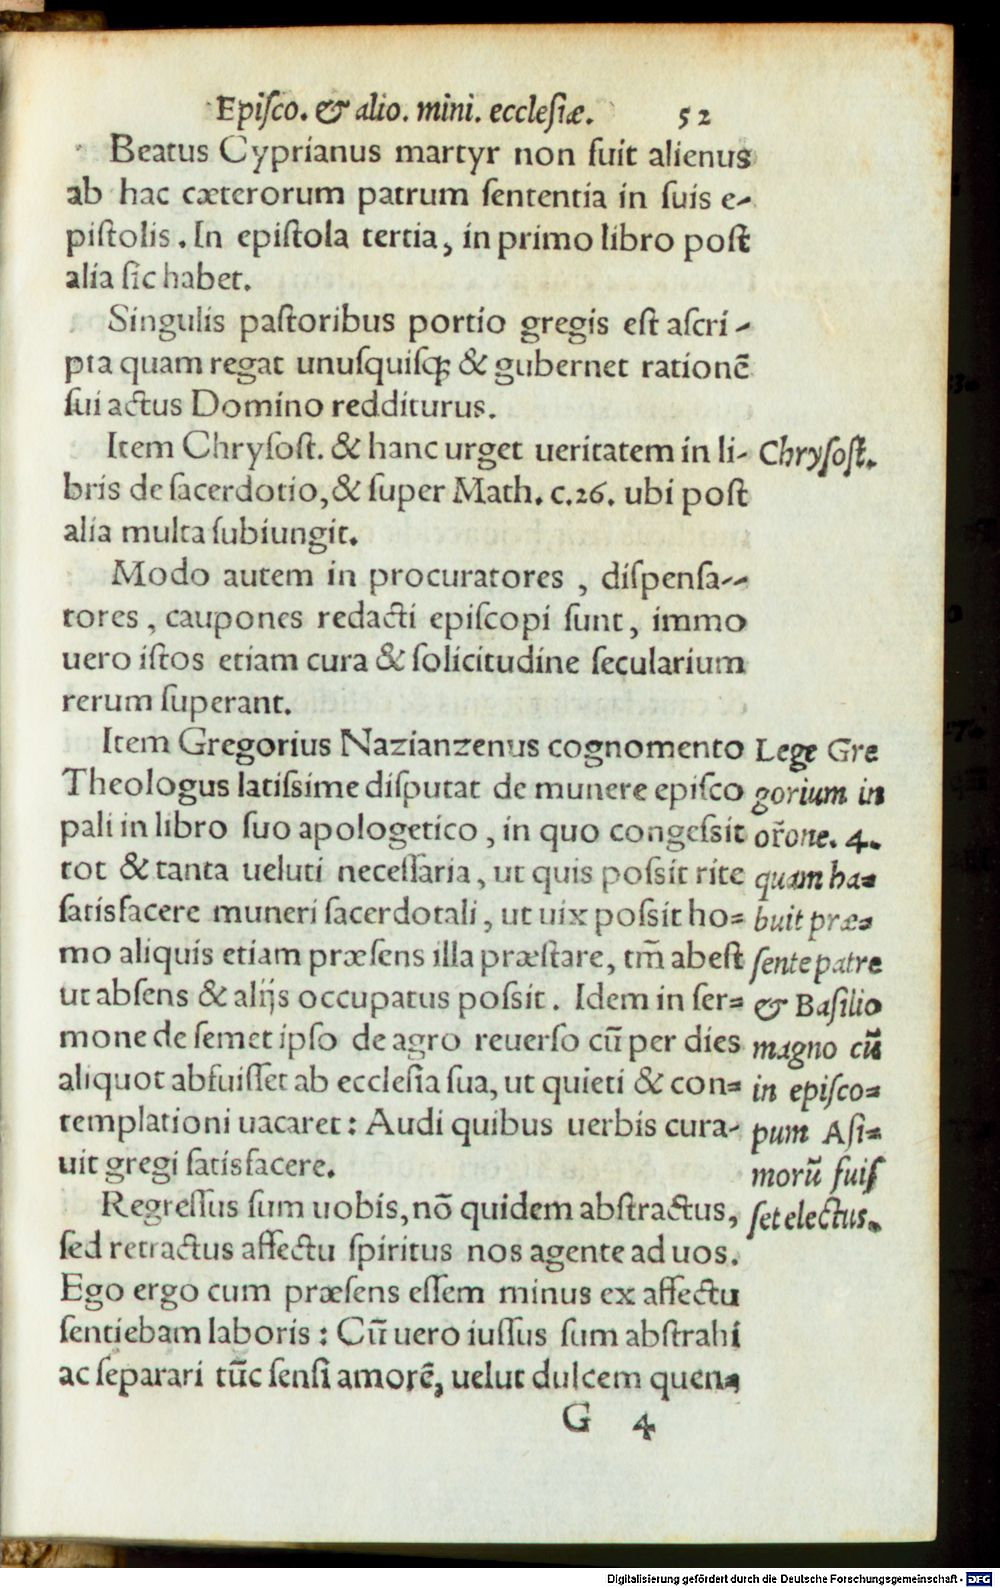 Episco. & alio. mini. ecclesiæ. 52
Beatus Cyprianus martyr non fuit alienus
ab hac cæterorum patrum sententia in suis e-
pistolis. In epistola tertia, in primo libro post
alia sic habet.
Singulis pastoribus portio gregis est ascri-
pta quam regat unusquisqꝫ & gubernet rationẽ
sui actus Domino redditurus.
Item Chrysost. & hanc urget ueritatem in li-
bris de sacerdotio, & super Math. c.26. ubi post
alia multa subiungit.
Modo autem in procuratores, dispensa--
tores, caupones redacti episcopi sunt, immo
uero istos etiam cura & solicitudine secularium
rerum superant.
Item Gregorius Nazianzenus cognomento
Theologus latissime disputat de munere episco
pali in libro suo apologetico, in quo congessit
tot & tanta ueluti necessaria, ut quis possit rite
satisfacere muneri sacerdotali, ut uix possit ho=
mo aliquis etiam præsens illa præstare, tm̃ abest
ut absens & alijs occupatus possit. Idem in ser=
mone de semet ipso de agro reuerso cũ per dies
aliquot abfuisset ab ecclesia sua, ut quieti & con=
templationi uacaret: Audi quibus uerbis cura-
uit gregi satisfacere.
Regressus sum uobis, nõ quidem abstractus,
sed retractus affectu spiritus nos agente ad uos.
Ego ergo cum præsens essem minus ex affectu
sentiebam laboris: Cũ uero iussus sum abstrahi
ac separari tũc sensi amorẽ, uelut dulcem quen=
G 4
Chrysost.
Lege Gre
gorium in
or̃one. 4.
quam ha=
buit præ=
sente patre
& Basilio
magno cũ
in episco=
pum Asi=
morũ fuis
set electus.
Digitalisierung gefördert durch die Deutsche Forschungsgemeinschaft - DFG